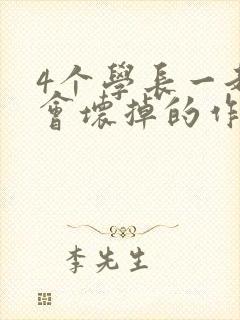 4个學長一起
會壞掉的作
李先生